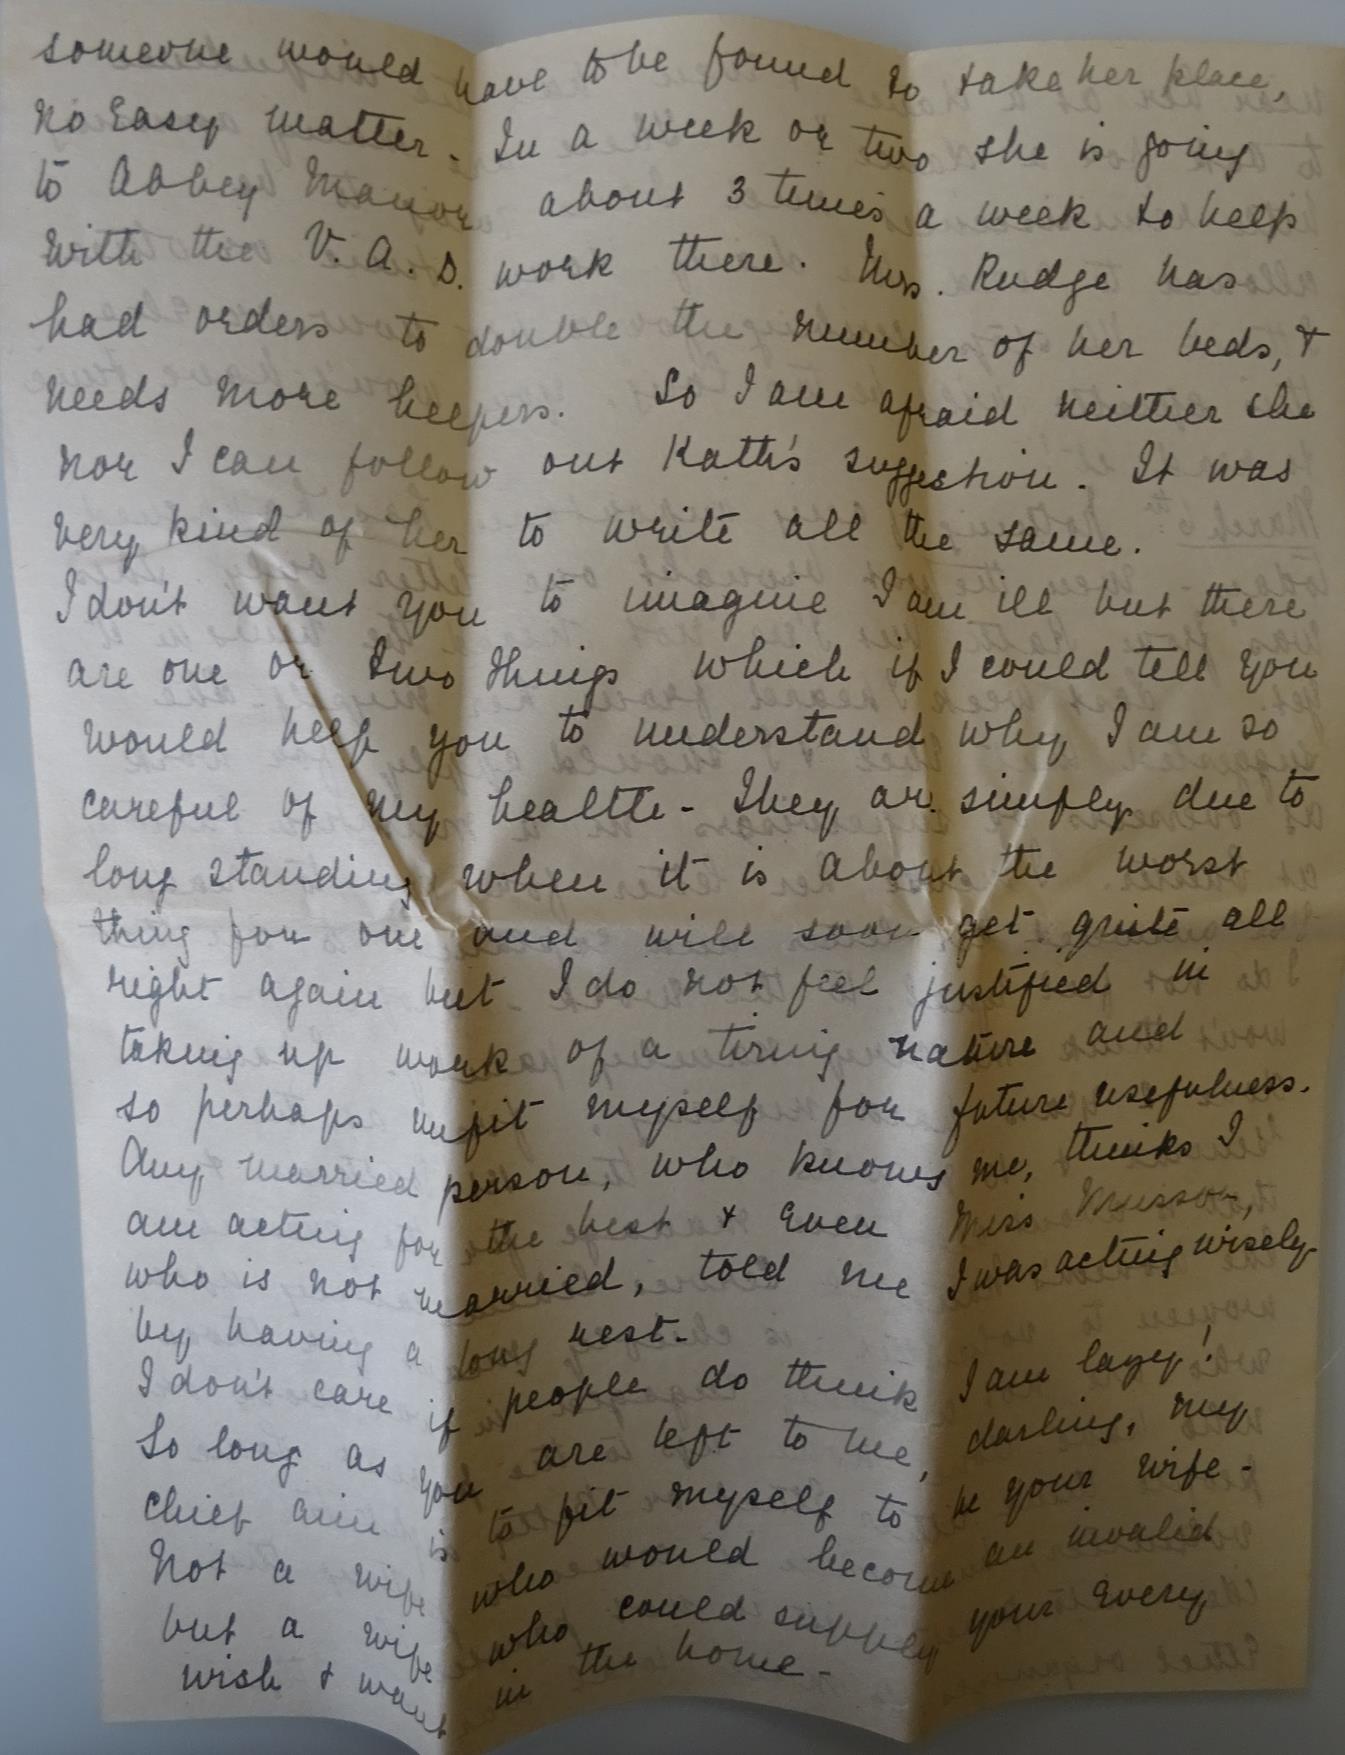 someone would have to be found to take her place,
no Easy matter. In a week or two she is going
to Abbey Manor about 3 times a week to help
with the V.A.D. work there. Mrs. Rudge has
had orders to double the number of her beds, &
needs more helpers. So I am afraid neither she
nor I can follow out Kath's suggestion. It was
very kind of her to write all the same.
I don't want you to imagine I am ill but there
are one or two things which if I could tell you
would help you to understand why I am so
careful of my health - They are simply due to
long standing when it is about the worst
thing for one and will soon get quite all
right again but I do not feel justified in
taking up work of a tiring nature and
so perhaps unfit myself for future usefulness.
Any married person, who knows me, thinks I
am acting for the best & Even Miss Musson,
who is not married, told me I was acting wisely
by having a long rest.
I don't care if people do think I am lazy!
So long as you are left to me, darling, my
chief aim is to fit myself to be your wife -
Not a wife who would become an invalid
but a wife who could supply your Every
wish & want in the home -